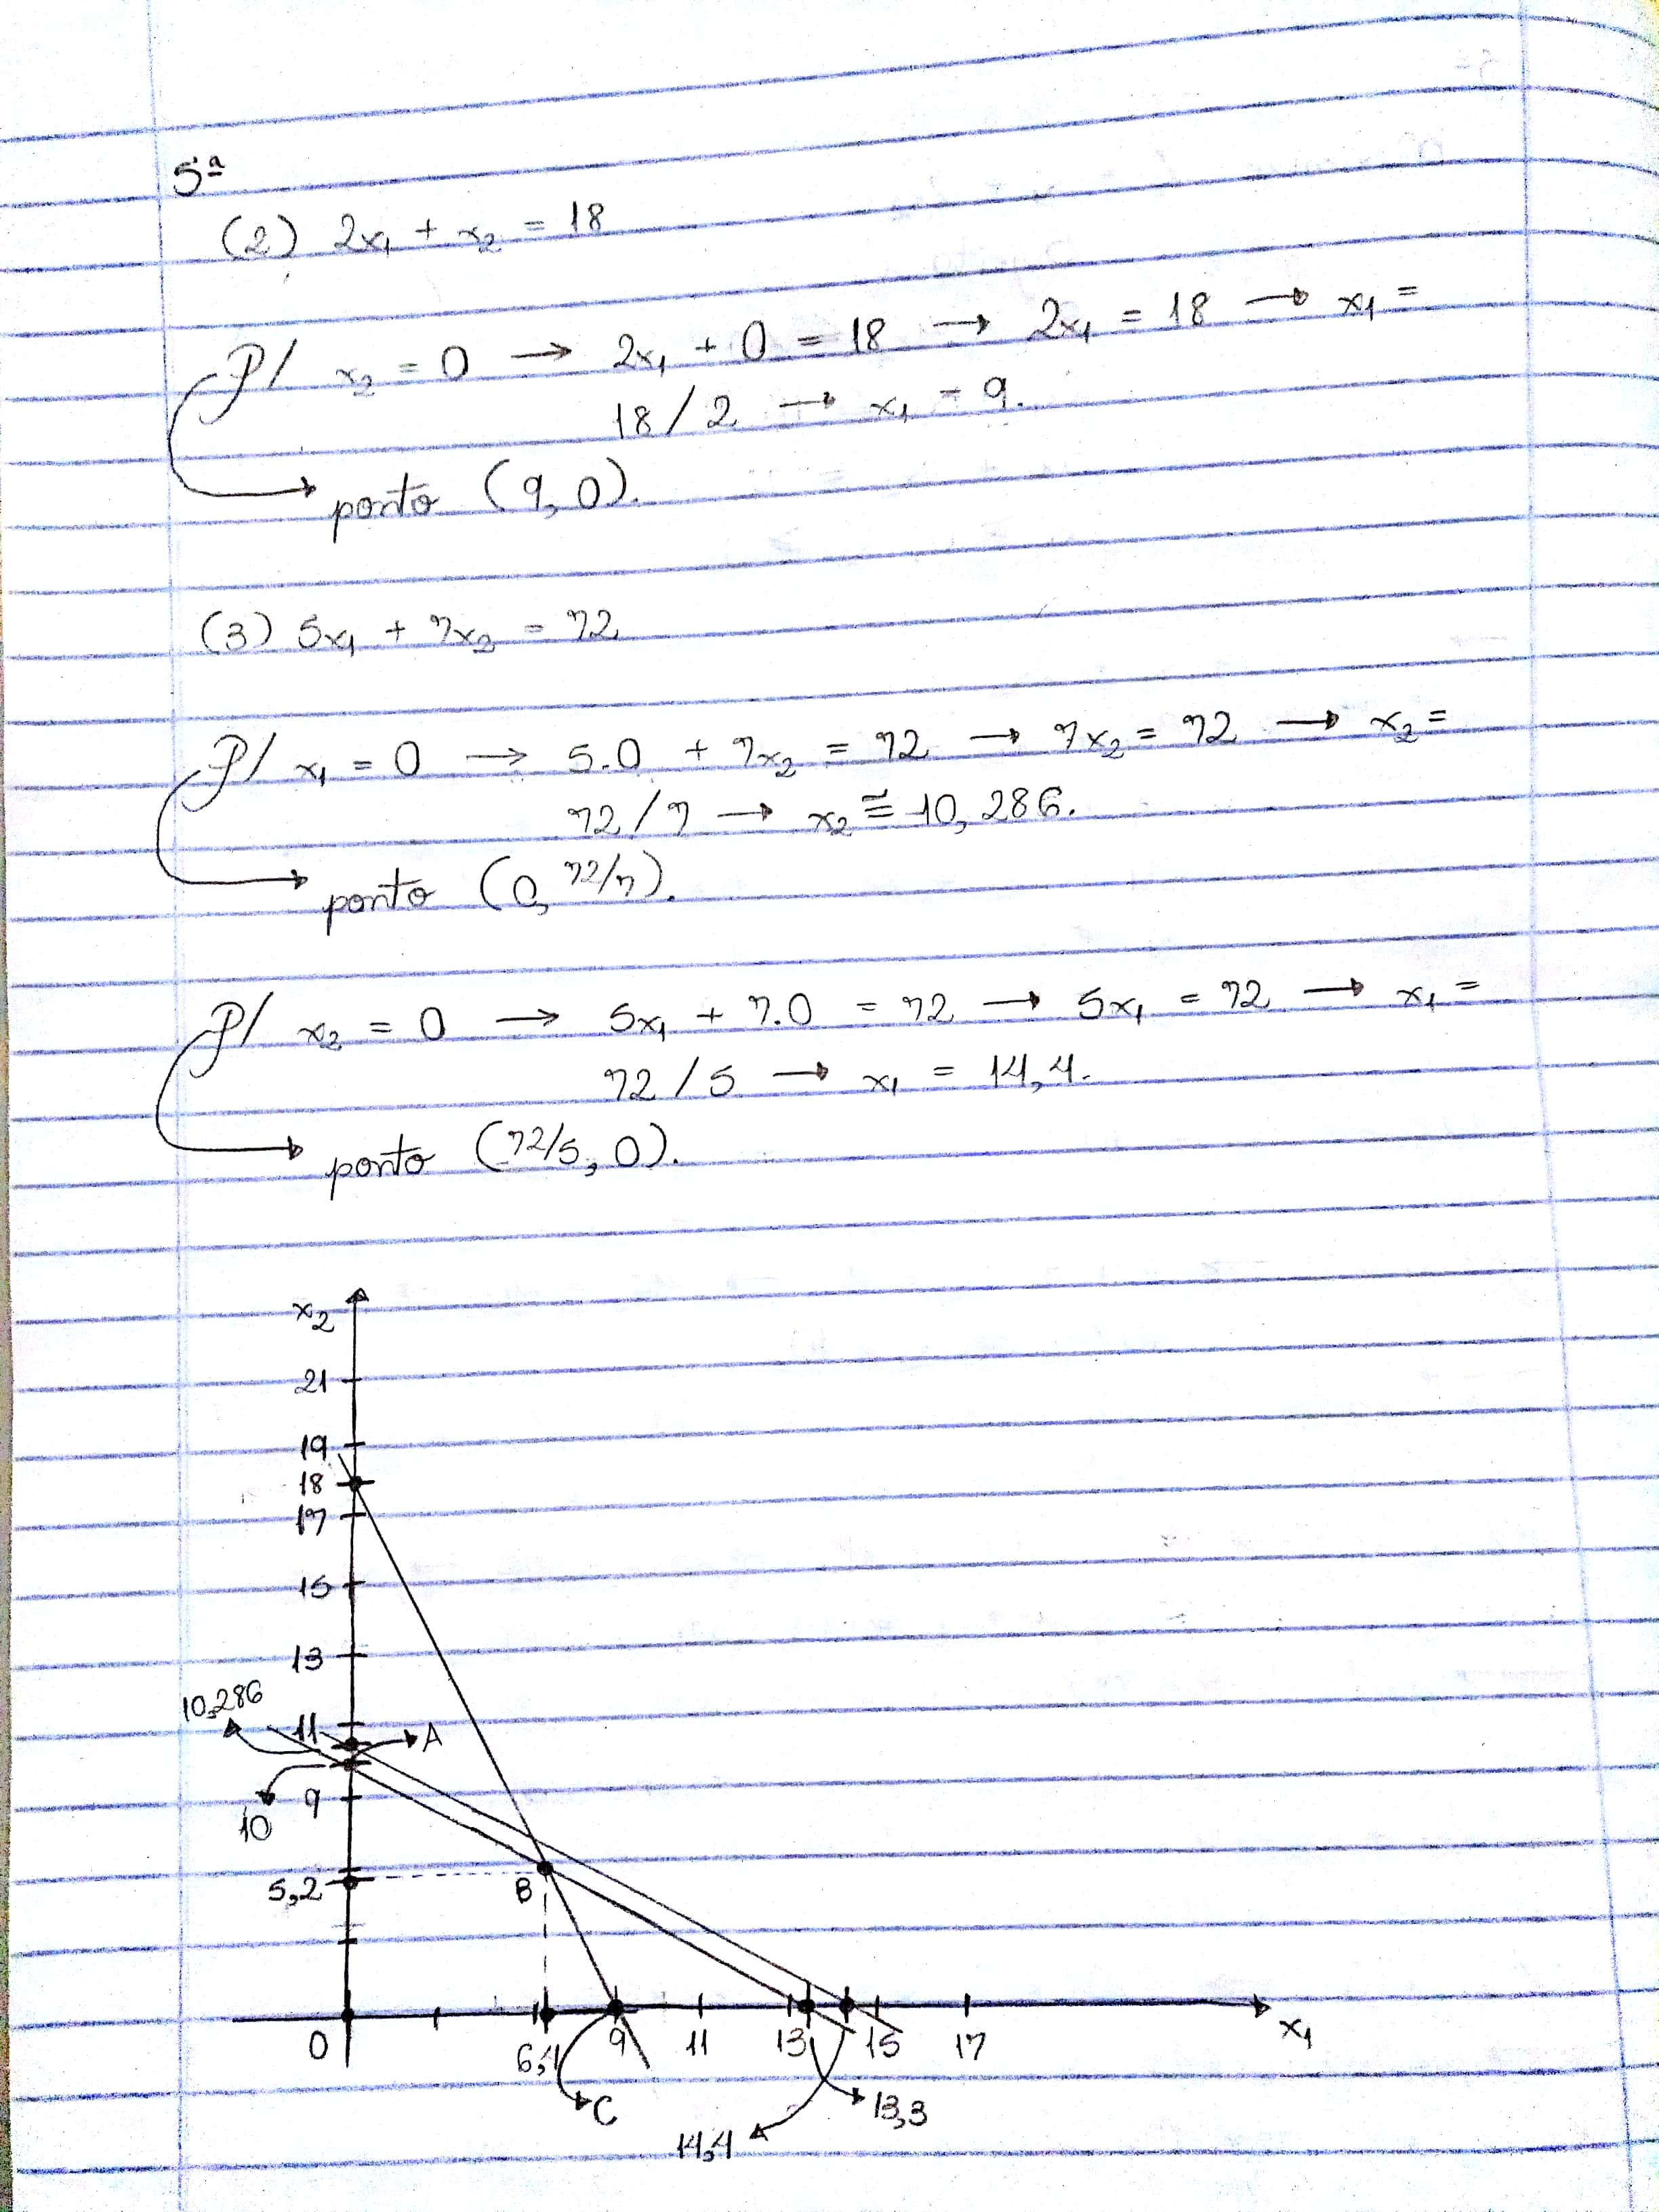 5ª
(2) 2x₁ + x₂ = 18
P/ x₂ = 0 → 2x₁ + 0 = 18 → 2x₁ = 18 → x₁ =
18/2 → x₁ = 9.
ponto (9, 0).
(3) 5x₁ + 7x₂ = 72
P/ x₁ = 0 → 5.0 + 7x₂ = 72 → 7x₂ = 72 → x₂ =
72/7 → x₂ ≅ 10,286.
ponto (0, 72/7).
P/ x₂ = 0 → 5x₁ + 7.0 = 72 → 5x₁ = 72 → x₁ =
72/5 → x₁ = 14,4.
ponto (72/5, 0).
x₂
21
19
18
17
15
13
10,286
11
A
10
9
5,2
B
0
6,4
9
11
13
15
17
x₁
C
13,3
14,4